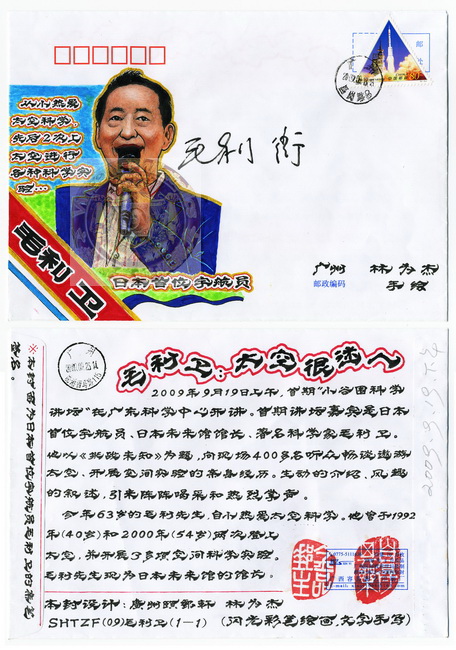 从小热爱
太空科学.
先后2次上
太空进行
各种科学实
验…
邮
毛利衛
毛利 卫
日本首位宇航员
广州 林为杰
手绘
邮政编码
毛利卫:太空很迷人
2009年9月19日上午,首期“小谷围科学
讲坛”在广东科学中心开讲。首期讲坛嘉宾是日本
首位宇航员、日本未来馆馆长、著名科学家毛利卫。
他以《挑战未知》为题,向现场400多名听众畅谈遨游
太空、开展空间实验的亲身经历。生动的介绍、风趣
的叙述,引来阵阵喝采和热烈掌声。
今年63岁的毛利先生,自小热爱太空科学。他曾于1992
年(40岁)和2000年(54岁)两次登上
太空,并开展了多项空间科学实验。
毛利先生现为日本未来馆的馆长。
本封设计:广州 林为杰
SHTZF(09)毛利卫(1-1) (闪光彩笔绘画,文字手写)
※本封面为日本首位宇航员毛利卫的亲笔
签名。
2009.9.19下午